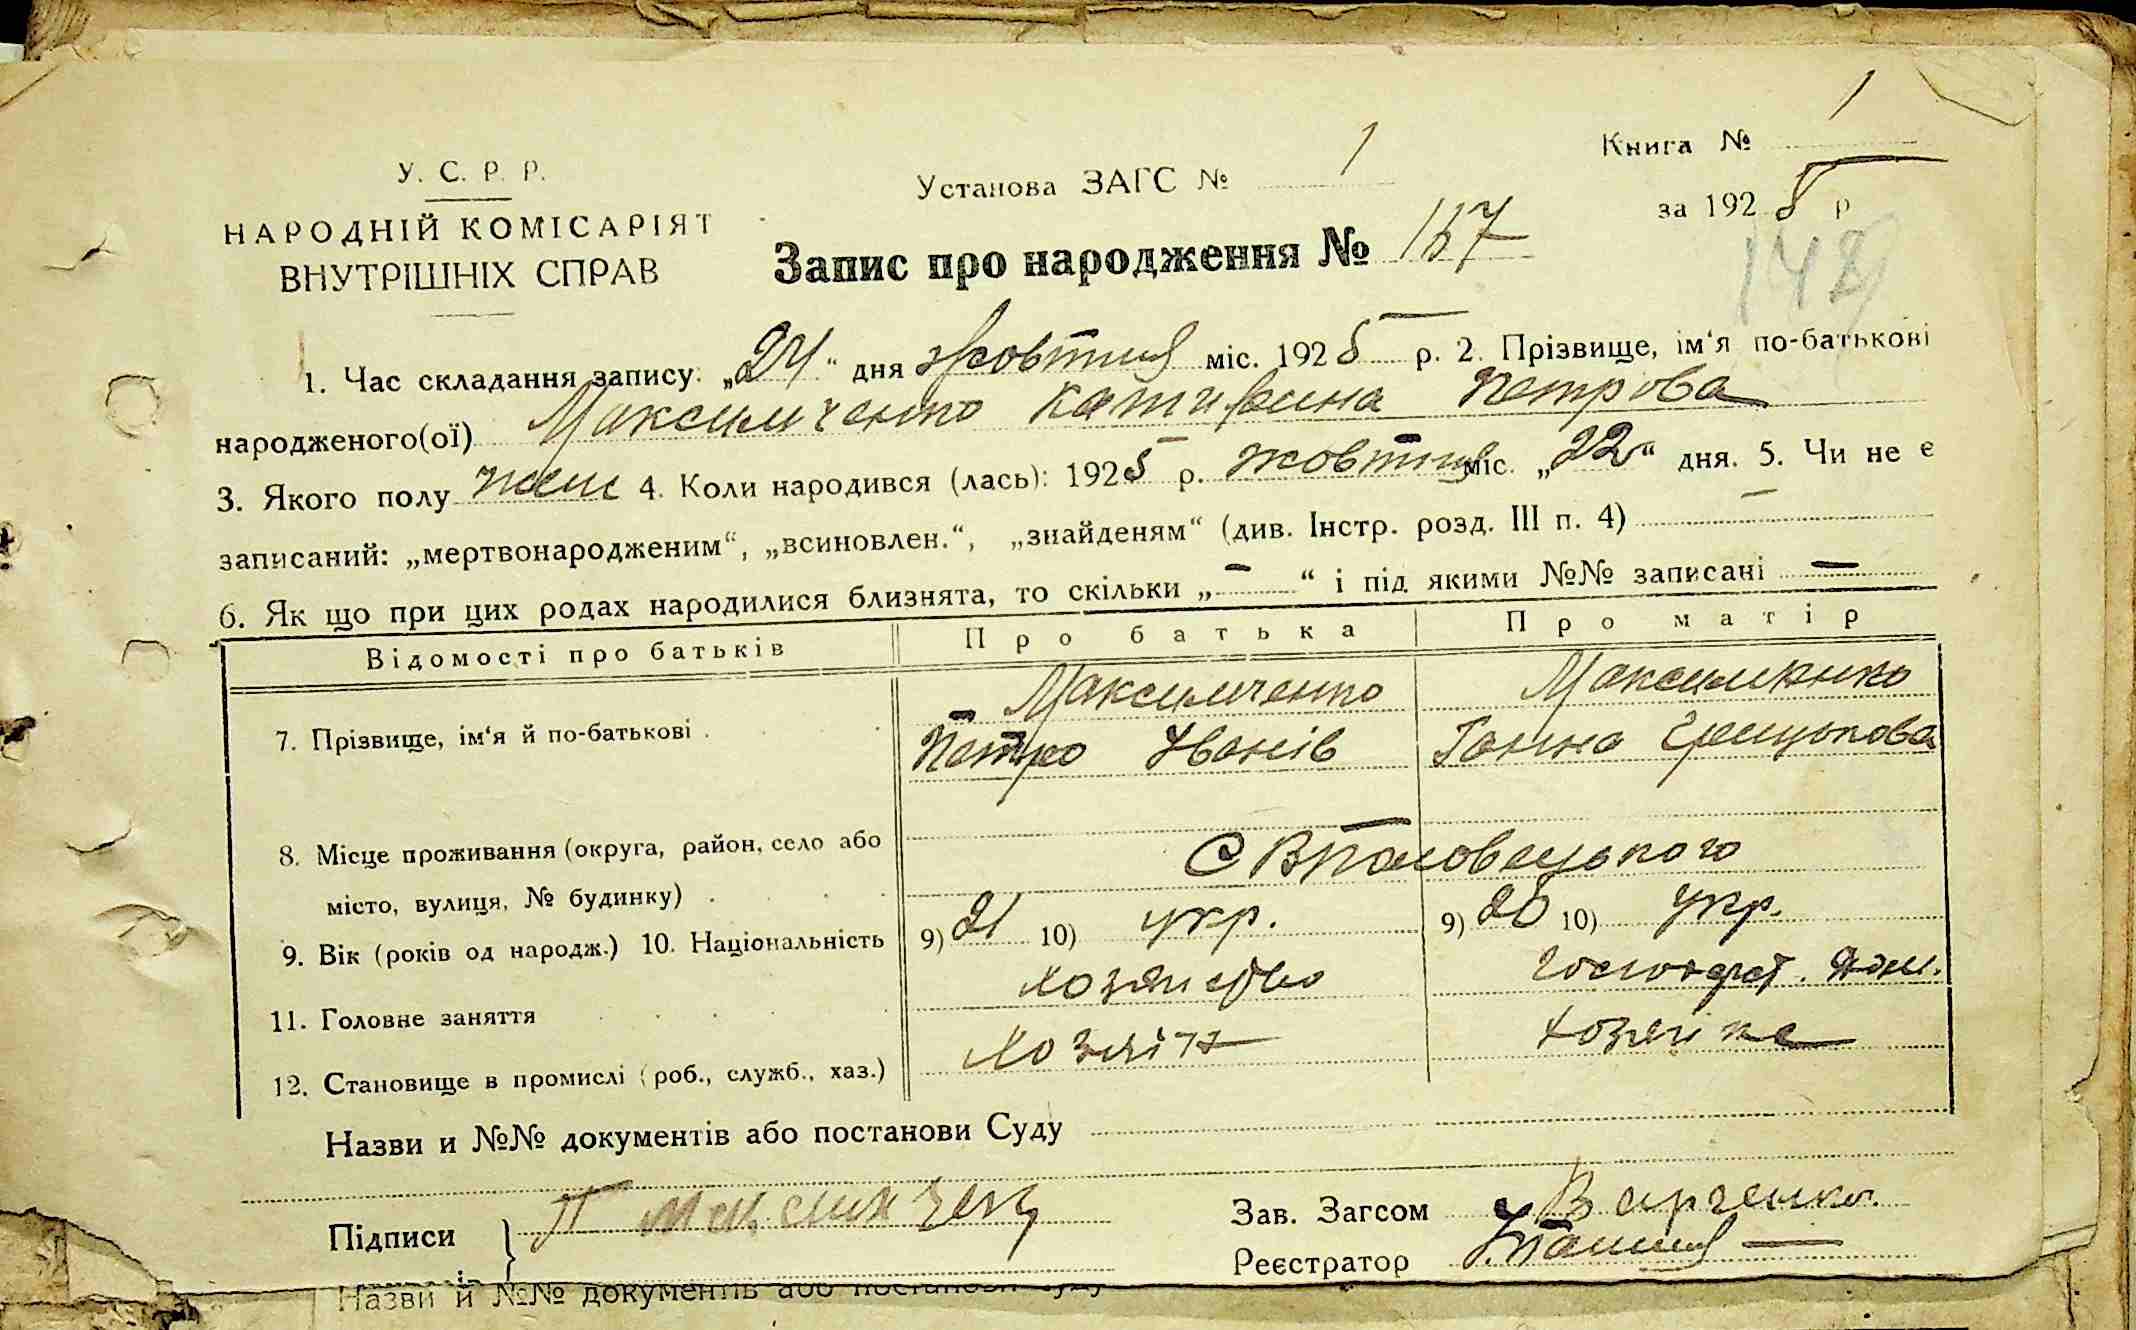 Книга № 1
У. С. Р. Р.
Установа ЗАГС № 1
за 1925 р
НАРОДНІЙ КОМІСАРІЯТ
ВНУТРІШНІХ СПРАВ
Запис про народження № 167
148
1. Час складання запису: „24“ дня жовтня міс. 1925 р. 2. Прізвище, ім‘я по-батькові
народженого(ої) Максимченко Катирина Петрова
3. Якого полу жен 4. Коли народився (лась): 1925 р. жовтня міс. „22“ дня. 5. Чи не є
записаний: „мертвонародженим“, „всиновлен.“, „знайденям“ (див. Інстр. розд. III п. 4) —
6. Як що при цих родах народилися близнята, то скільки „—“ і під якими №№ записані —
Відомості про батьків Про батька Про матір
Максимченко Максимченко
7. Прізвище, ім‘я й по-батькові Петро Іванів Ганна Грицькова
8. Місце проживання (округа, район, село або
місто, вулиця, № будинку)
9. Вік (років од народж.) 10. Національність 9) 21 10) укр. 9) 20 10) укр.
11. Головне заняття хозяйство
12. Становище в промислі (роб., служб., хаз.) хозяїн хозяйка
Назви и №№ документів або постанови Суду
Підписи П Максимчен Зав. Загсом
Реєстратор
Назви й №№ документів або постанови Суду